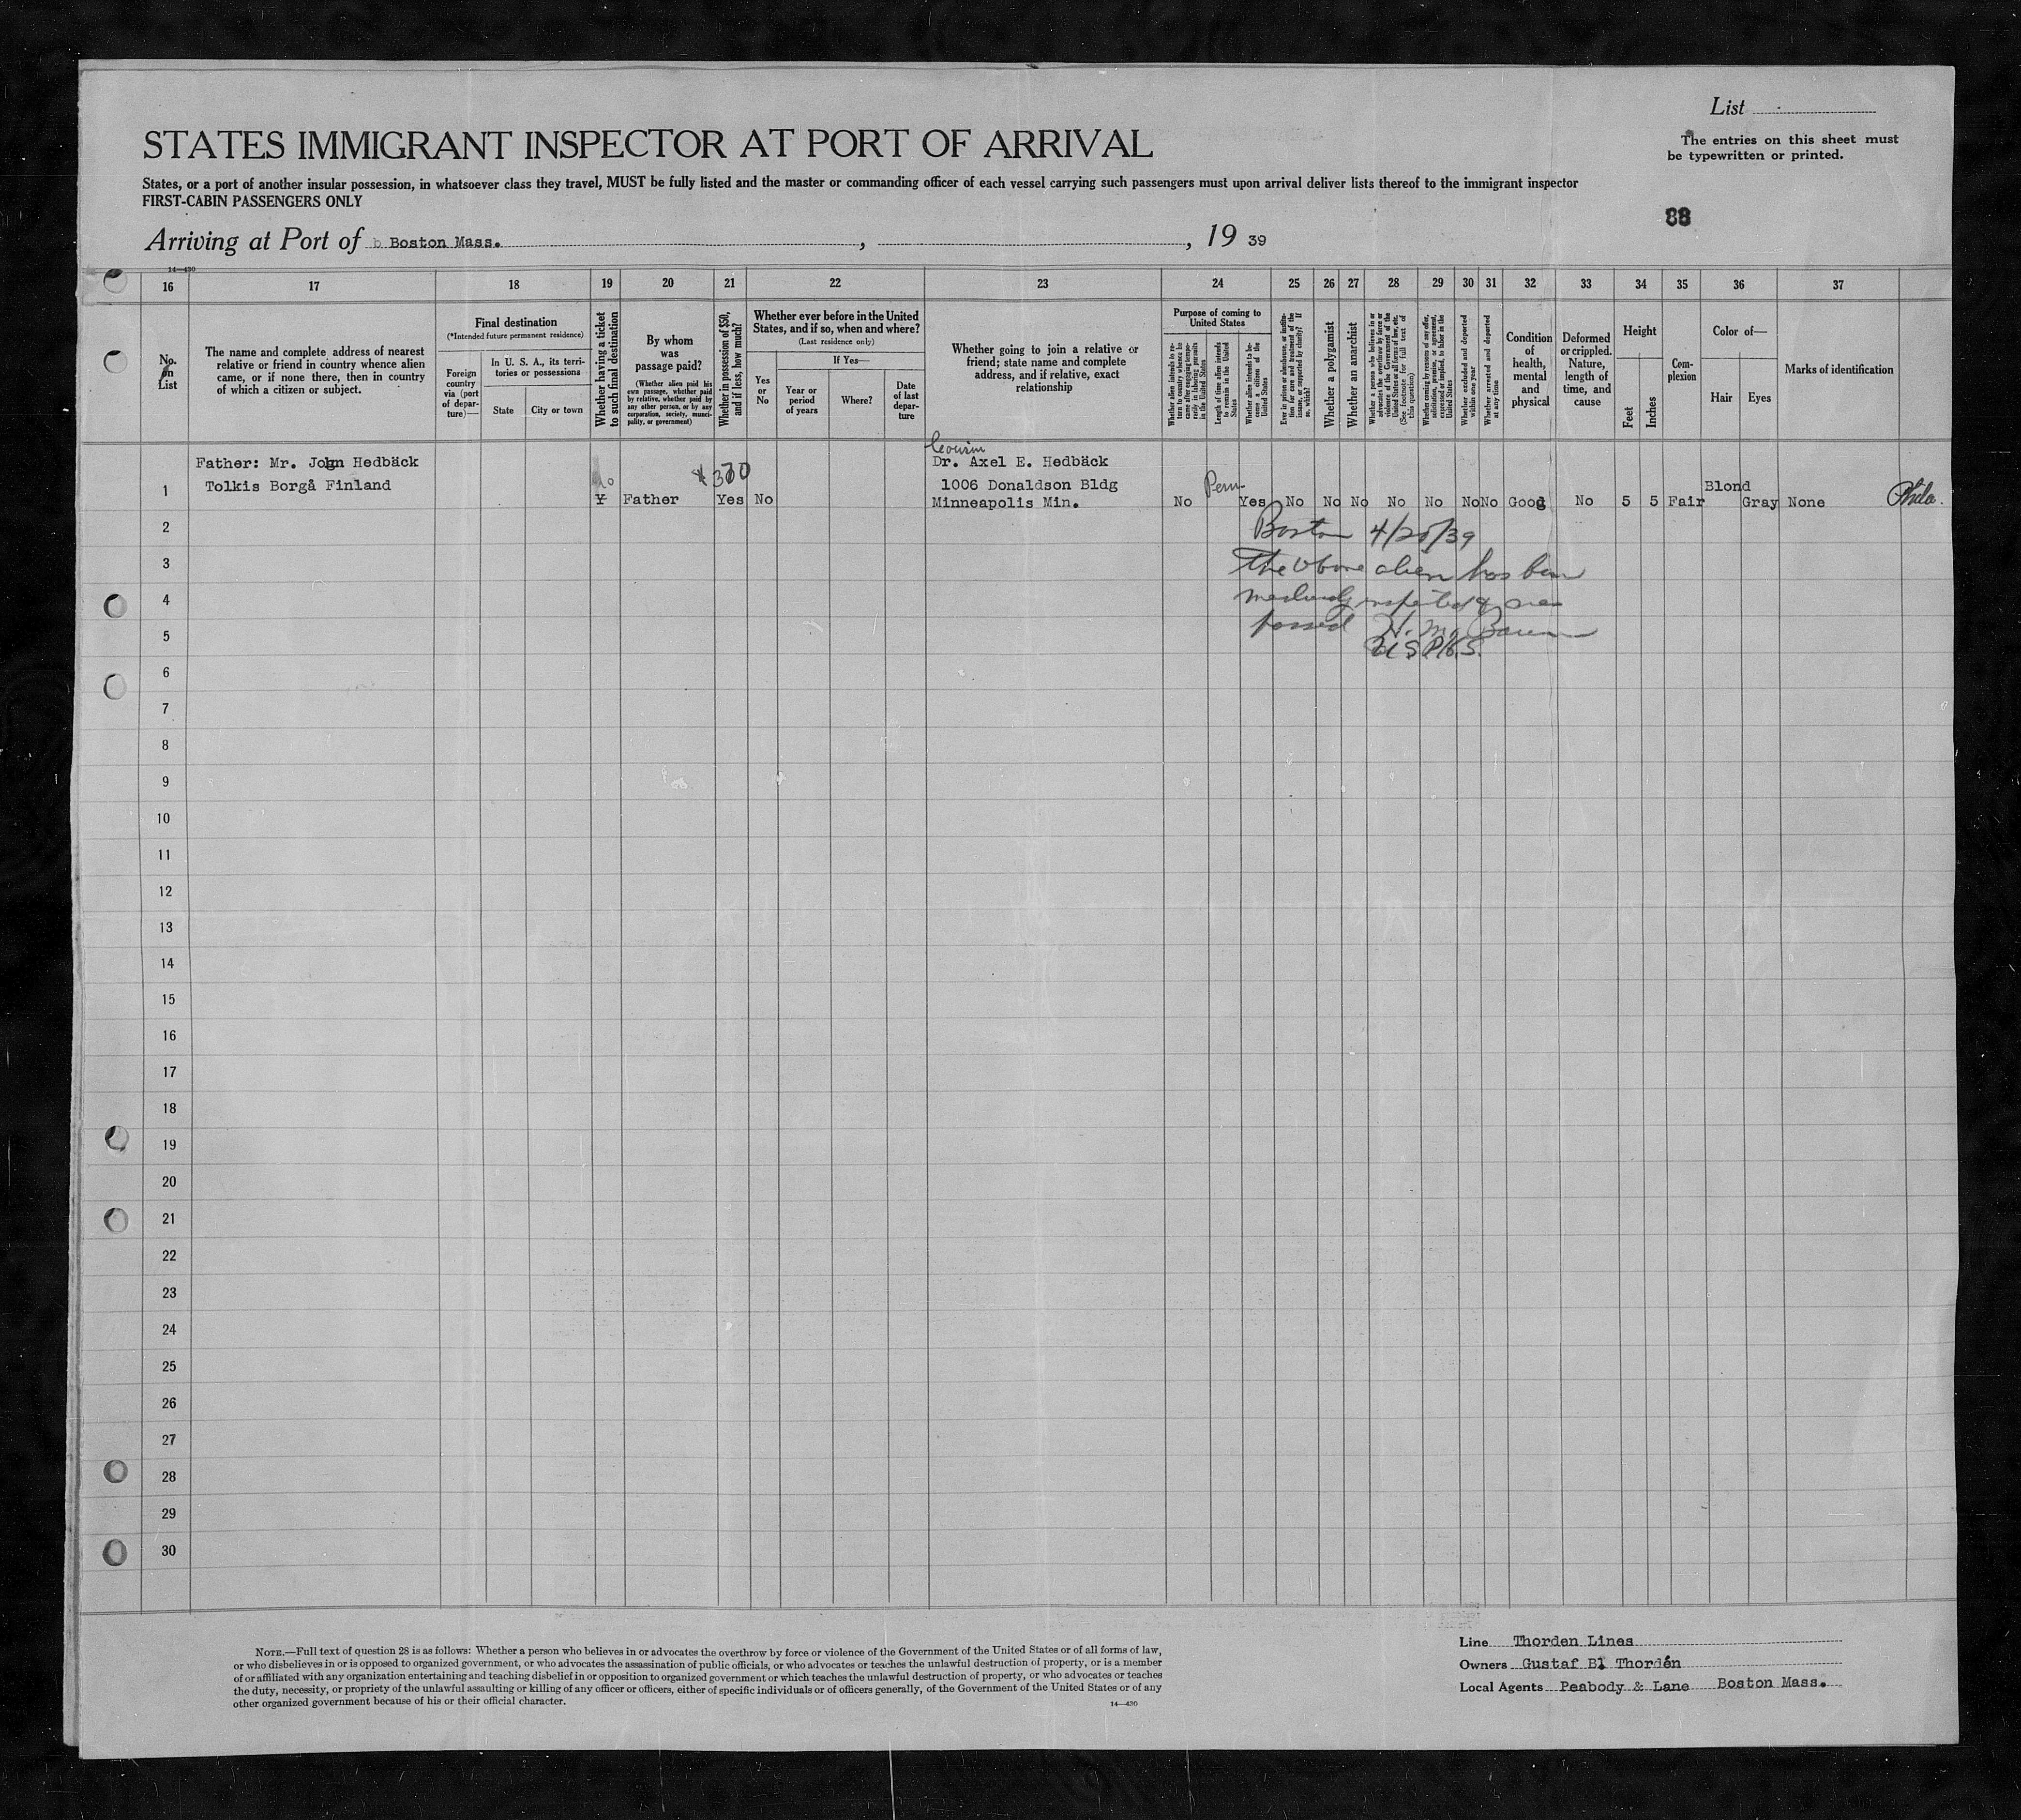 List
The entries on this sheet must
be typewritten or printed.
STATES IMMIGRANT INSPECTOR AT PORT OF ARRIVAL
States, or a port of another insular possession, in whatsoever class they travel, MUST be fully listed and the master or commanding officer of each vessel carrying such passengers must upon arrival deliver lists thereof to the immigrant inspector
FIRST-CABIN PASSENGERS ONLY
88
Arriving at Port of Boston Mass. , , 19 39
14—430
16 17 18 19 20 21 22 23 24 25 26 27 28 29 30 31 32 33 34 35 36 37
No.
on
List
The name and complete address of nearest
relative or friend in country whence alien
came, or if none there, then in country
of which a citizen or subject.
Final destination
(*Intended future permanent residence)
Foreign
country
via (port
of depar-
ture)—
In U. S. A., its terri-
tories or possessions
State
City or town
Whether having a ticket
to such final destination
By whom
was
passage paid?
(Whether alien paid his
own passage, whether paid
by relative, whether paid by
any other person, or by any
corporation, society, munici-
pality, or government)
Whether in possession of $50,
and if less, how much?
Whether ever before in the United
States, and if so, when and where?
(Last residence only)
Yes
or
No
If Yes—
Year or
period
of years
Where?
Date
of last
depar-
ture
Whether going to join a relative or
friend; state name and complete
address, and if relative, exact
relationship
Purpose of coming to
United States
Whether alien intends to re-
turn to country whence he
came after engaging tempo-
rarily in laboring pursuits
in the United States
Length of time alien intends
to remain in the United
States
Whether alien intends to be-
come a citizen of the
United States
Ever in prison or almshouse, or institu-
tion for care and treatment of the
insane, or supported by charity? If
so, which?
Whether a polygamist
Whether an anarchist
Whether a person who believes in or
advocates the overthrow by force or
violence of the Government of the
United States or all forms of law, etc.
(See footnote for full text of
this question)
Whether coming by reasons of any offer,
solicitation, promise, or agreement,
expressed or implied, to labor in the
United States
Whether excluded and deported
within one year
Whether arrested and deported
at any time
Condition
of
health,
mental
and
physical
Deformed
or crippled.
Nature,
length of
time, and
cause
Height
Feet
Inches
Com-
plexion
Color of—
Hair
Eyes
Marks of identification
Cousin
Father: Mr. John Hedbäck Dr. Axel E. Hedbäck
Tolkis Borgå Finland no $370 1006 Donaldson Bldg Perm Blond
1 Y Father Yes No Minneapolis Min. No Yes No No No No No No No Good No 5 5 Fair Gray None Phila.
2
Boston 4/25/39
3
The above alien has been
4
medically inspected &
5
passed H. M.
U S P H S.
6
7
8
9
10
11
12
13
14
15
16
17
18
19
20
21
22
23
24
25
26
27
28
29
30
NOTE.—Full text of question 28 is as follows: Whether a person who believes in or advocates the overthrow by force or violence of the Government of the United States or of all forms of law,
or who disbelieves in or is opposed to organized government, or who advocates the assassination of public officials, or who advocates or teaches the unlawful destruction of property, or is a member
of or affiliated with any organization entertaining and teaching disbelief in or opposition to organized government or which teaches the unlawful destruction of property, or who advocates or teaches
the duty, necessity, or propriety of the unlawful assaulting or killing of any officer or officers, either of specific individuals or of officers generally, of the Government of the United States or of any
other organized government because of his or their official character.
14—430
Line Thorden Lines
Owners Gustaf B. Thordén
Local Agents Peabody & Lane Boston Mass.